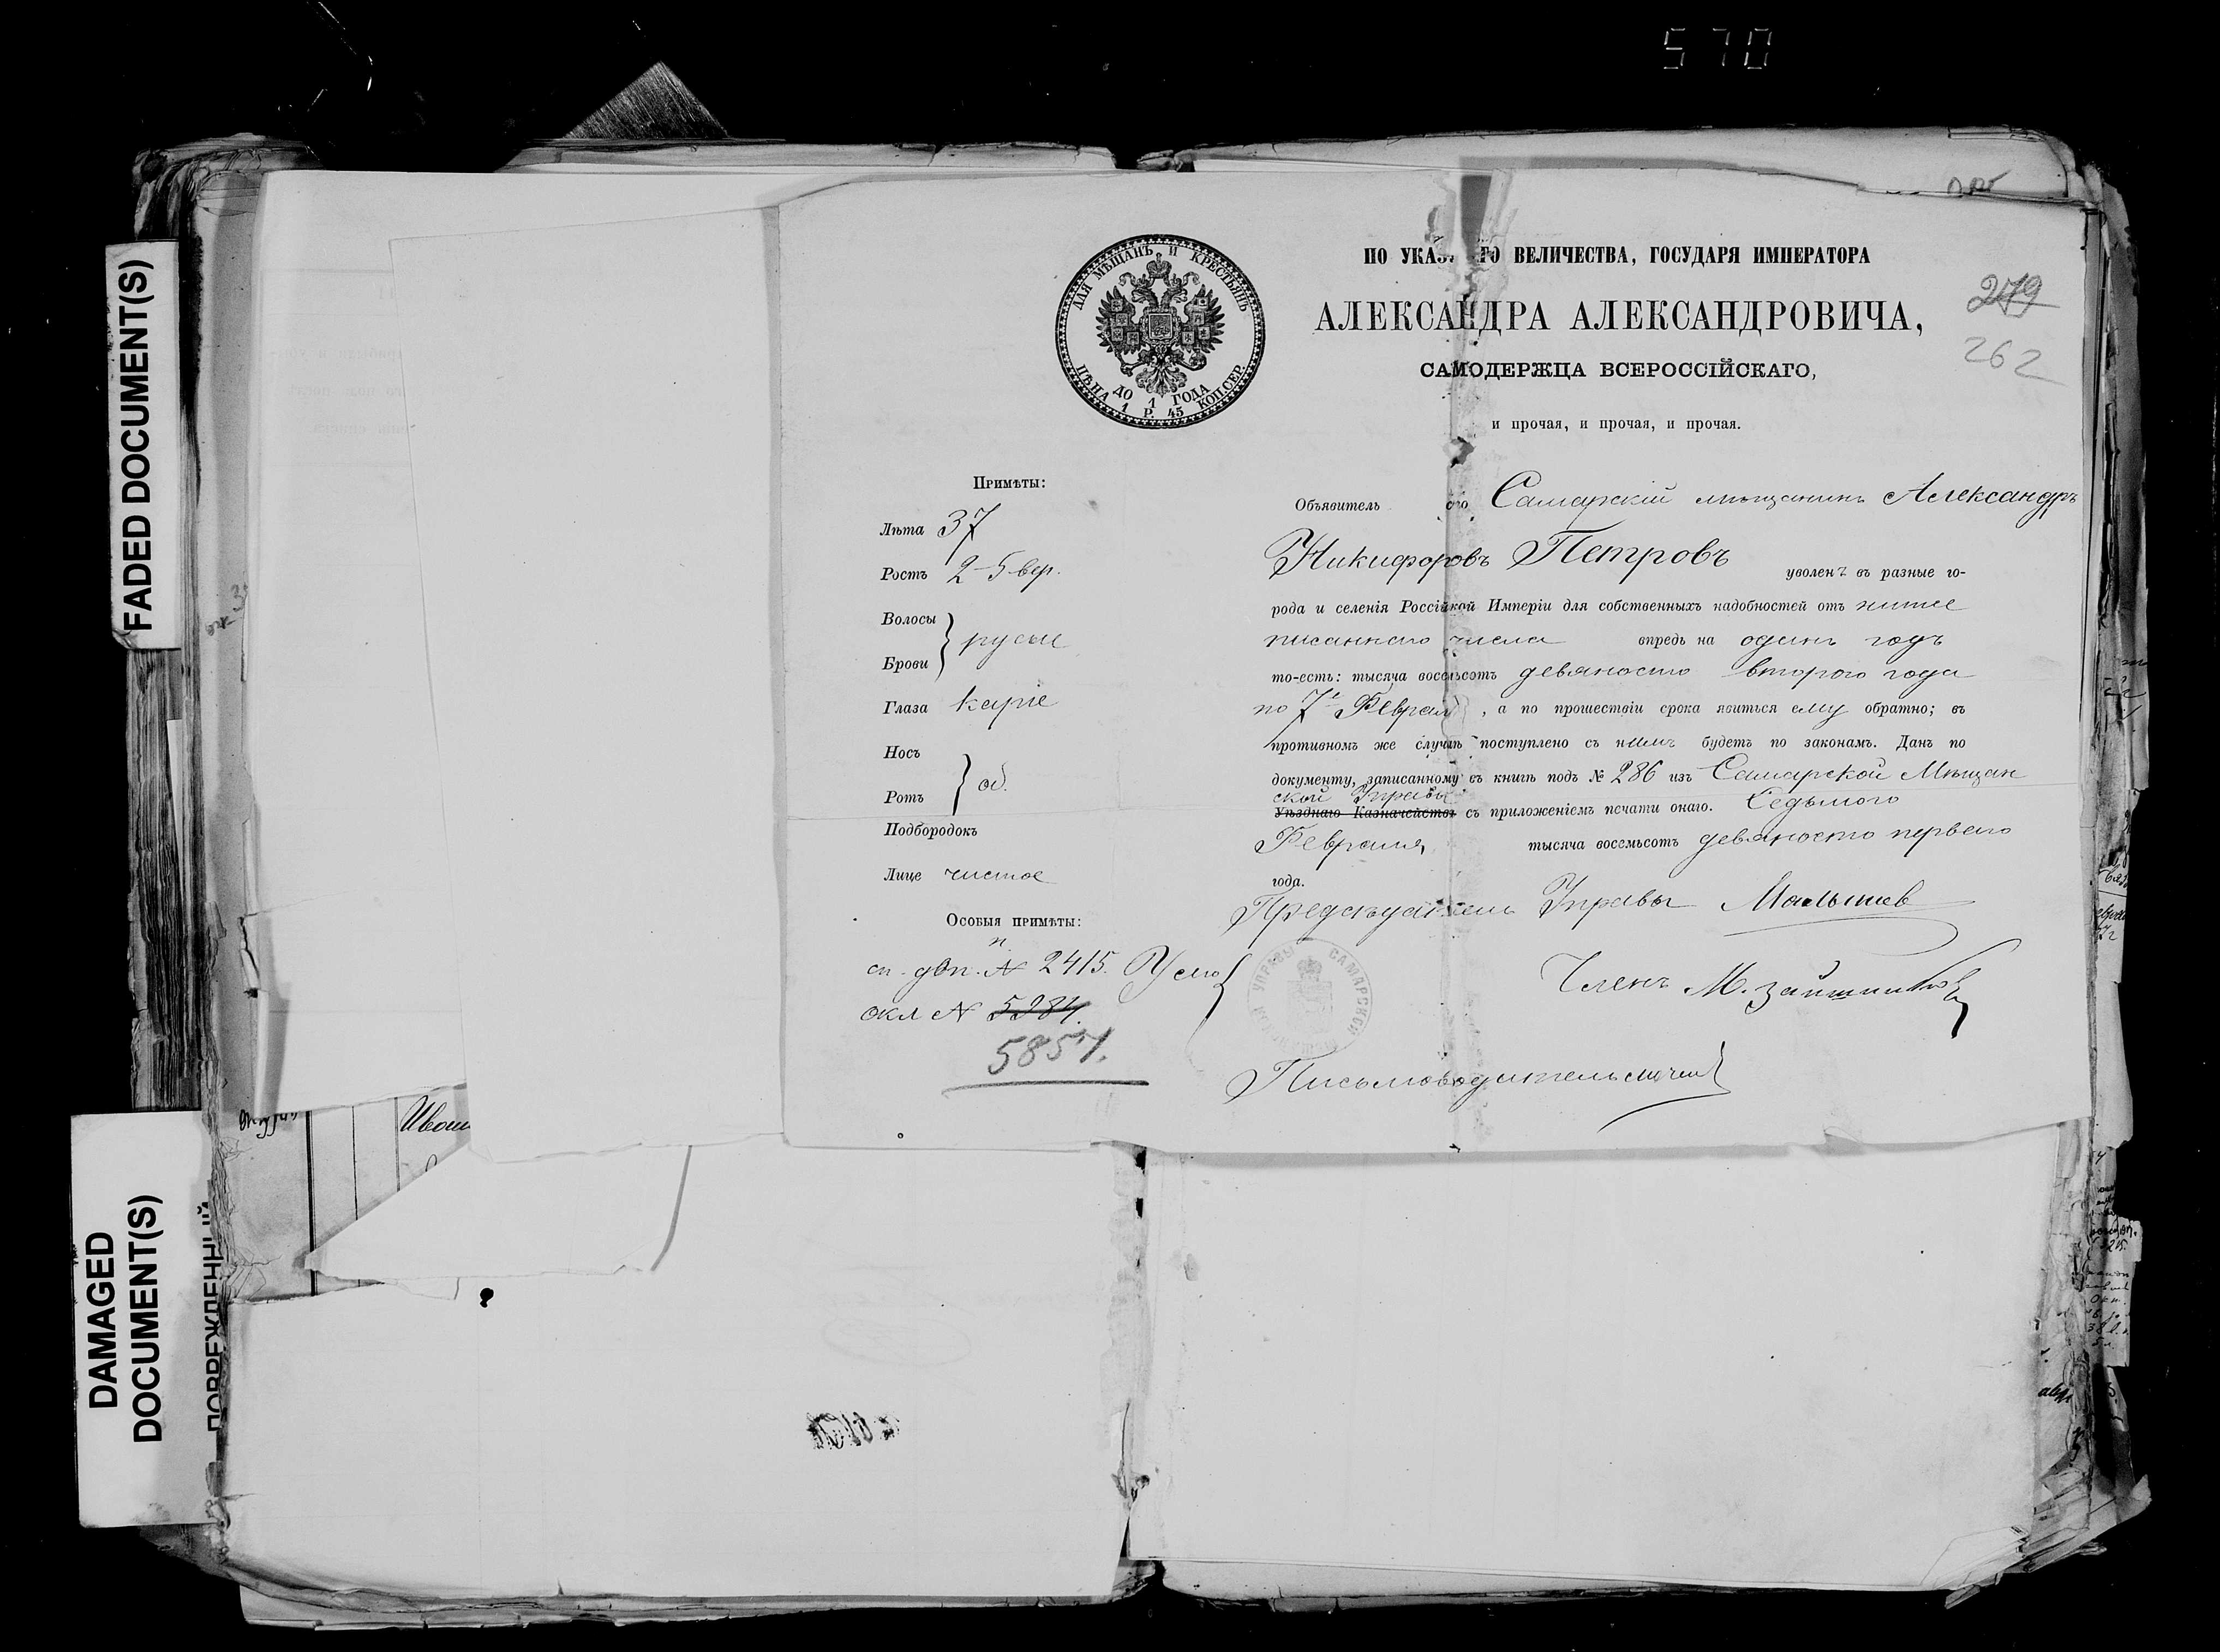 570
FADED DOCUMENT(S)
DAMAGED
DOCUMENT(S)
ПОВРЕЖДЕННЫЙ
ДЛЯ МѢЩАНЪ И КРЕСТЬЯНЪ
ДО 1 ГОДА
ЦѢНА 1 Р. 45 КОП. СЕР.
ПО УКАЗ ГО ВЕЛИЧЕСТВА, ГОСУДАРЯ ИМПЕРАТОРА
АЛЕКСАНДРА АЛЕКСАНДРОВИЧА,
САМОДЕРЖЦА ВСЕРОССІЙСКАГО,
и прочая, и прочая, и прочая.
279
262
Примѣты:
Лѣта 37
Ростъ 2–5 вер.
Волосы
Брови } русые
Глаза каріе
Носъ
Ротъ } об.
Подбородокъ
Лице чистое
Особыя примѣты:
сп. двп. № 2415.
окл № 5284.
5857.
Объявитель сего Самарскій мѣщанинъ Александръ
Никифоровъ Петровъ уволенъ въ разные го-
рода и селенія Россійкой Имперіи для собственныхъ надобностей отъ ниже
писаннаго числа впредь на одинъ годъ
то-есть: тысяча восемьсотъ девяносто второго года
по 7е Февраля, а по прошествіи срока явиться ему обратно; въ
противномъ же случаѣ поступлено съ нимъ будетъ по законамъ. Данъ по
документу, записанному въ книгѣ подъ № 286 изъ Самарской Мѣщан
ской Управы
Уѣзднаго Казначейства съ приложеніемъ печати онаго. Седьмого
Февраля тысяча восемьсотъ девяносто перваго
года.
Предсѣдатель Управы Малышев
Членъ М.
УПРАВЫ САМАРСКОЙ
Письмоводитель